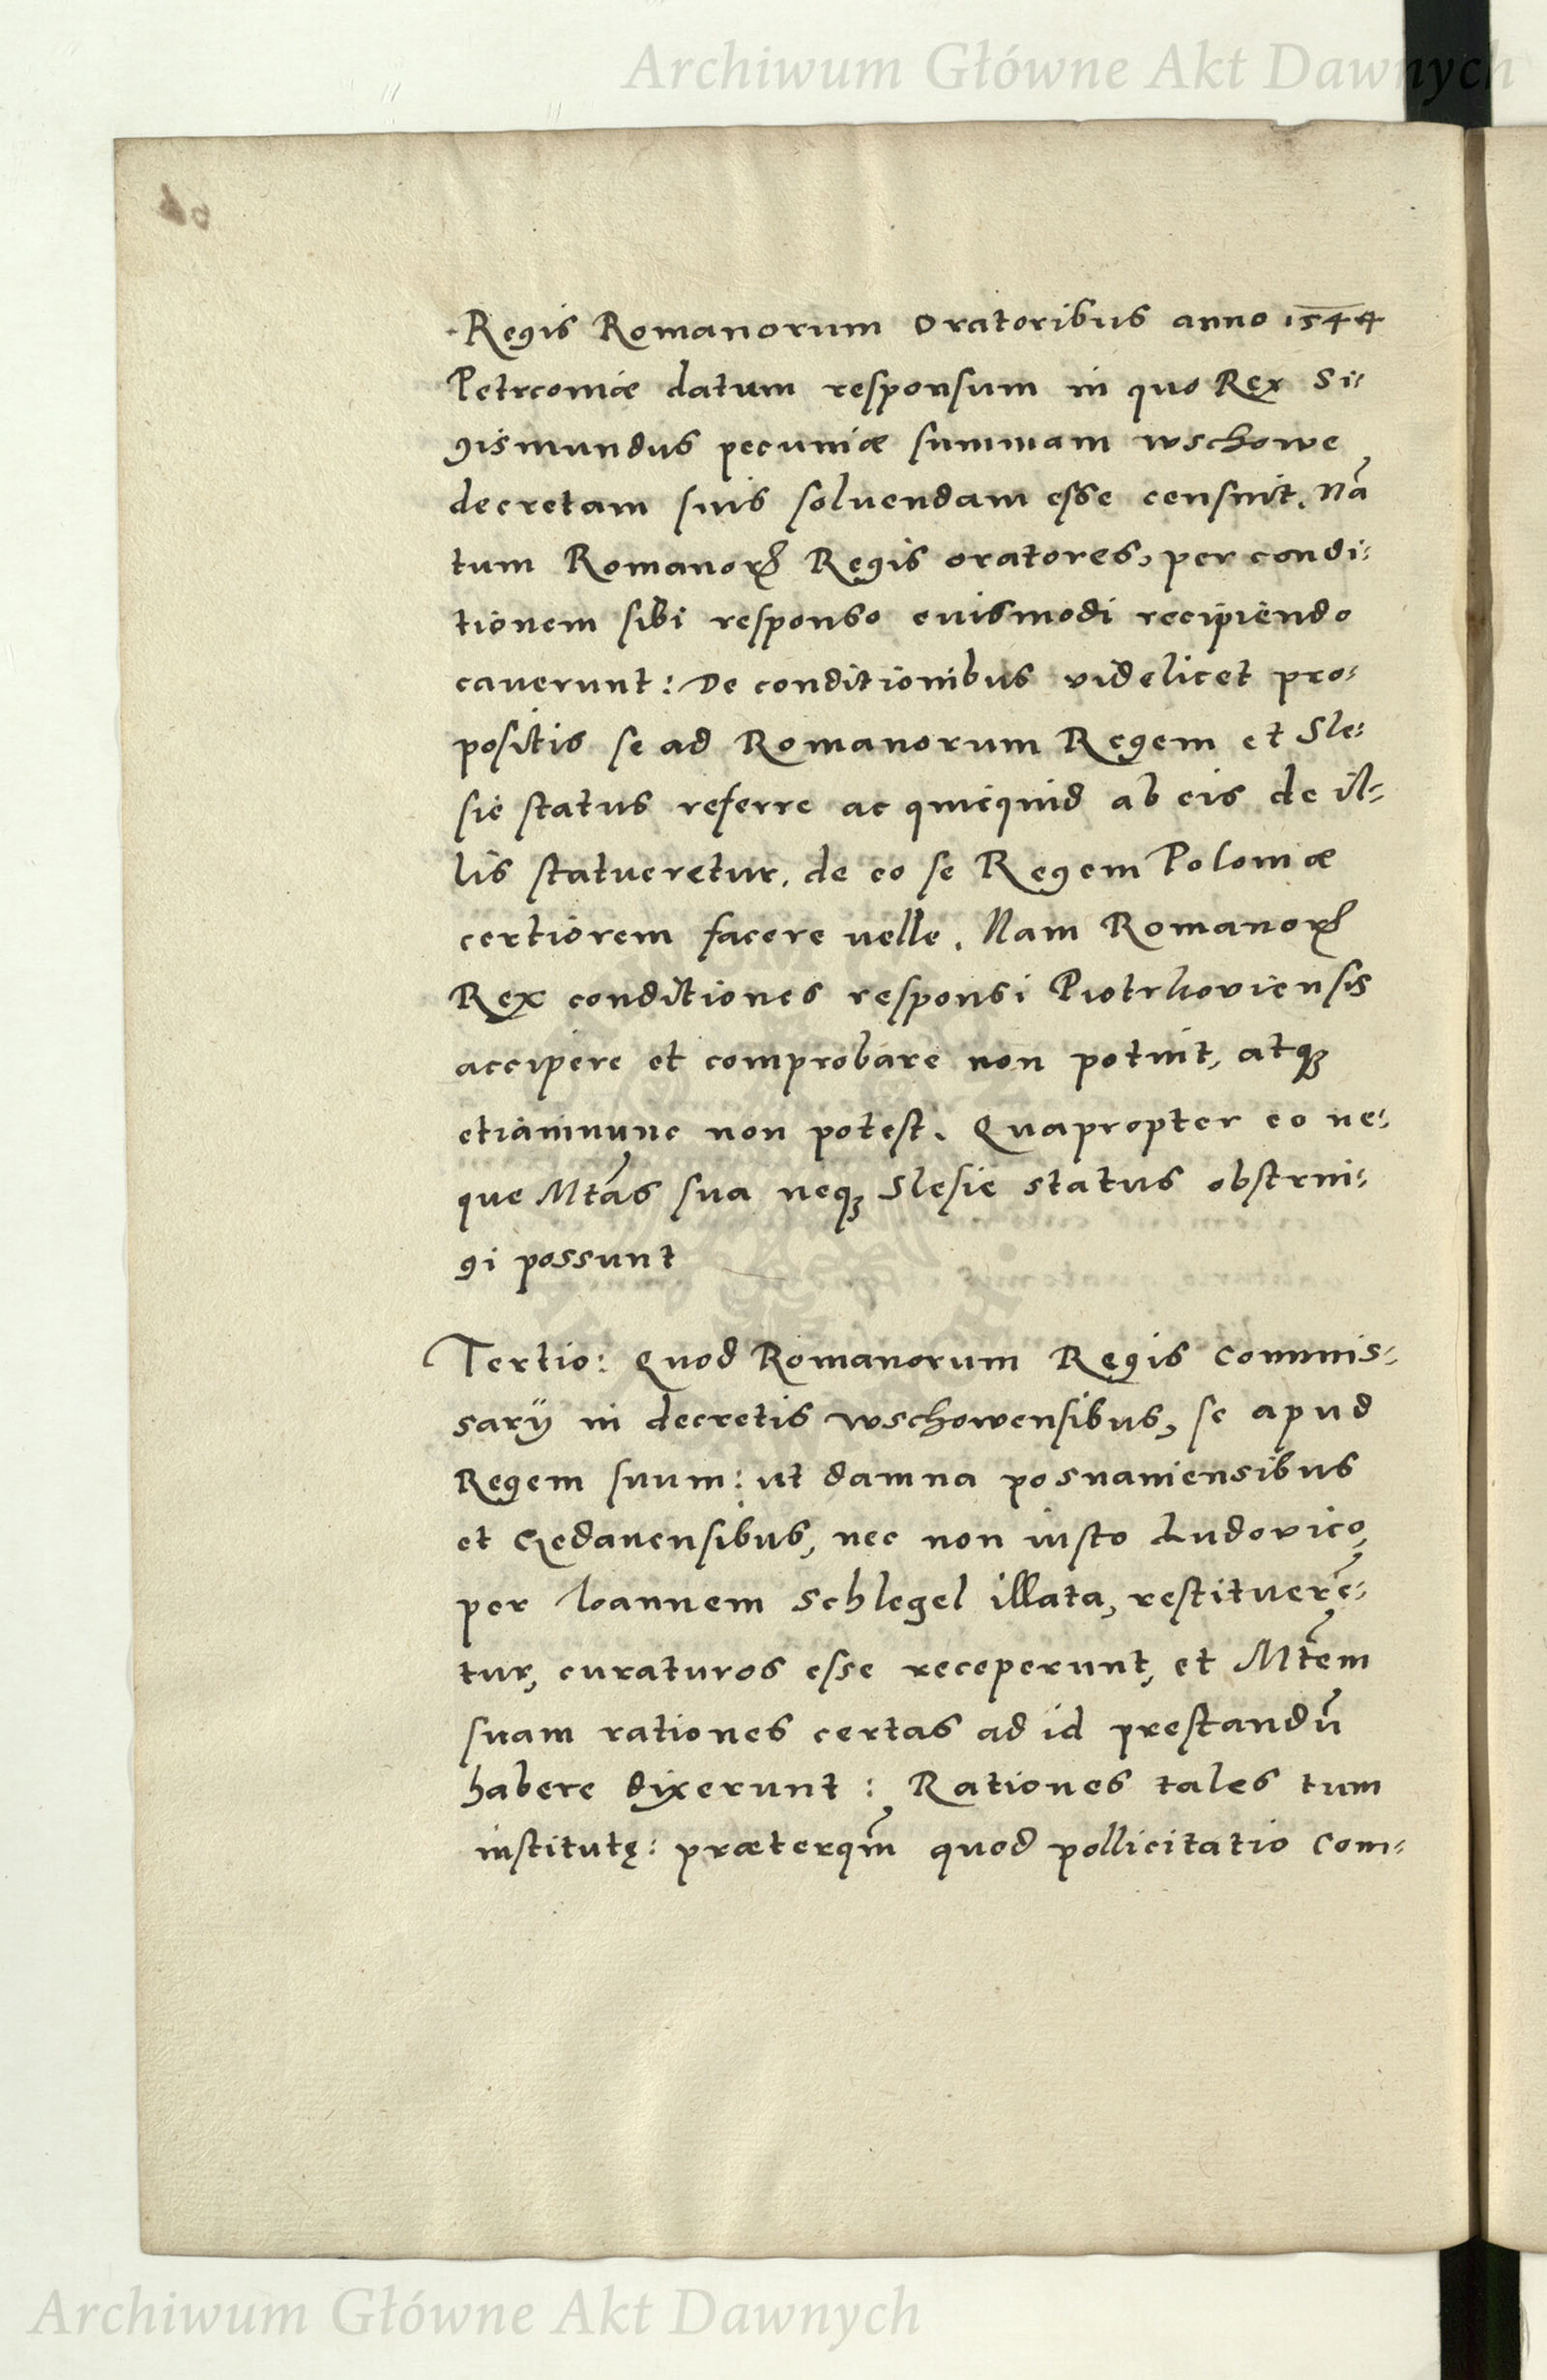 Archiwum Główne Akt Dawnych
Regis Romanorum Oratoribus anno 1544
Petrconiæ datum responsum in quo Rex Si-
gismundus pecuniæ summam wschowe
decretam suis soluendam esse censuit. Nā
tum Romanorꝝ Regis oratores, per condi-
tionem sibi responso euismodi recipiendo
cauerunt: De conditionibus videlicet pro-
positis se ad Romanorum Regem et Sle-
sie status referre ac quicquid ab eis de il-
lis statueretur, de eo se Regem Poloniæ
certiorem facere uelle. Nam Romanorꝝ
Rex conditiones responsi Piotrkoviensis
accipere et comprobare non potuit, atqꝫ
etiamnunc non potest. Quapropter eo ne-
que Mtās sua neqꝫ Slesie status obstrin-
gi possunt
Tertio: Quod Romanorum Regis Commis-
sarij in decretis wschowensibus, se apud
Regem suum: ut damna posnaniensibus
et Gedanensibus, nec non iusto Ludovico,
per Ioannem Schlegel illata, restituerē-
tur, curaturos esse receperunt, et Mtēm
suam rationes certas ad id prestandū
habere dixerunt: Rationes tales tum
institutę: præterqm̄ quod pollicitatio Com-
Archiwum Główne Akt Dawnych